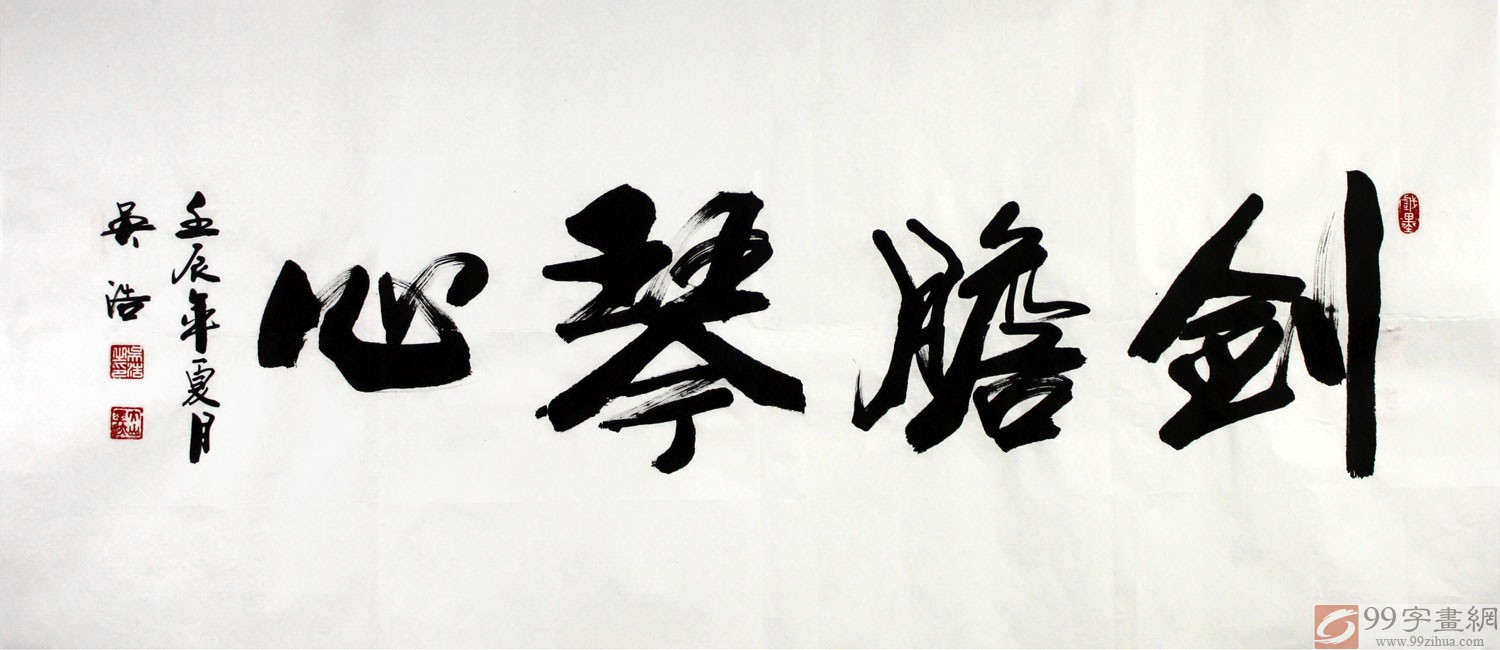 剑膽琴心
壬辰年夏月
吴浩
99字畫網
www.99zihua.com